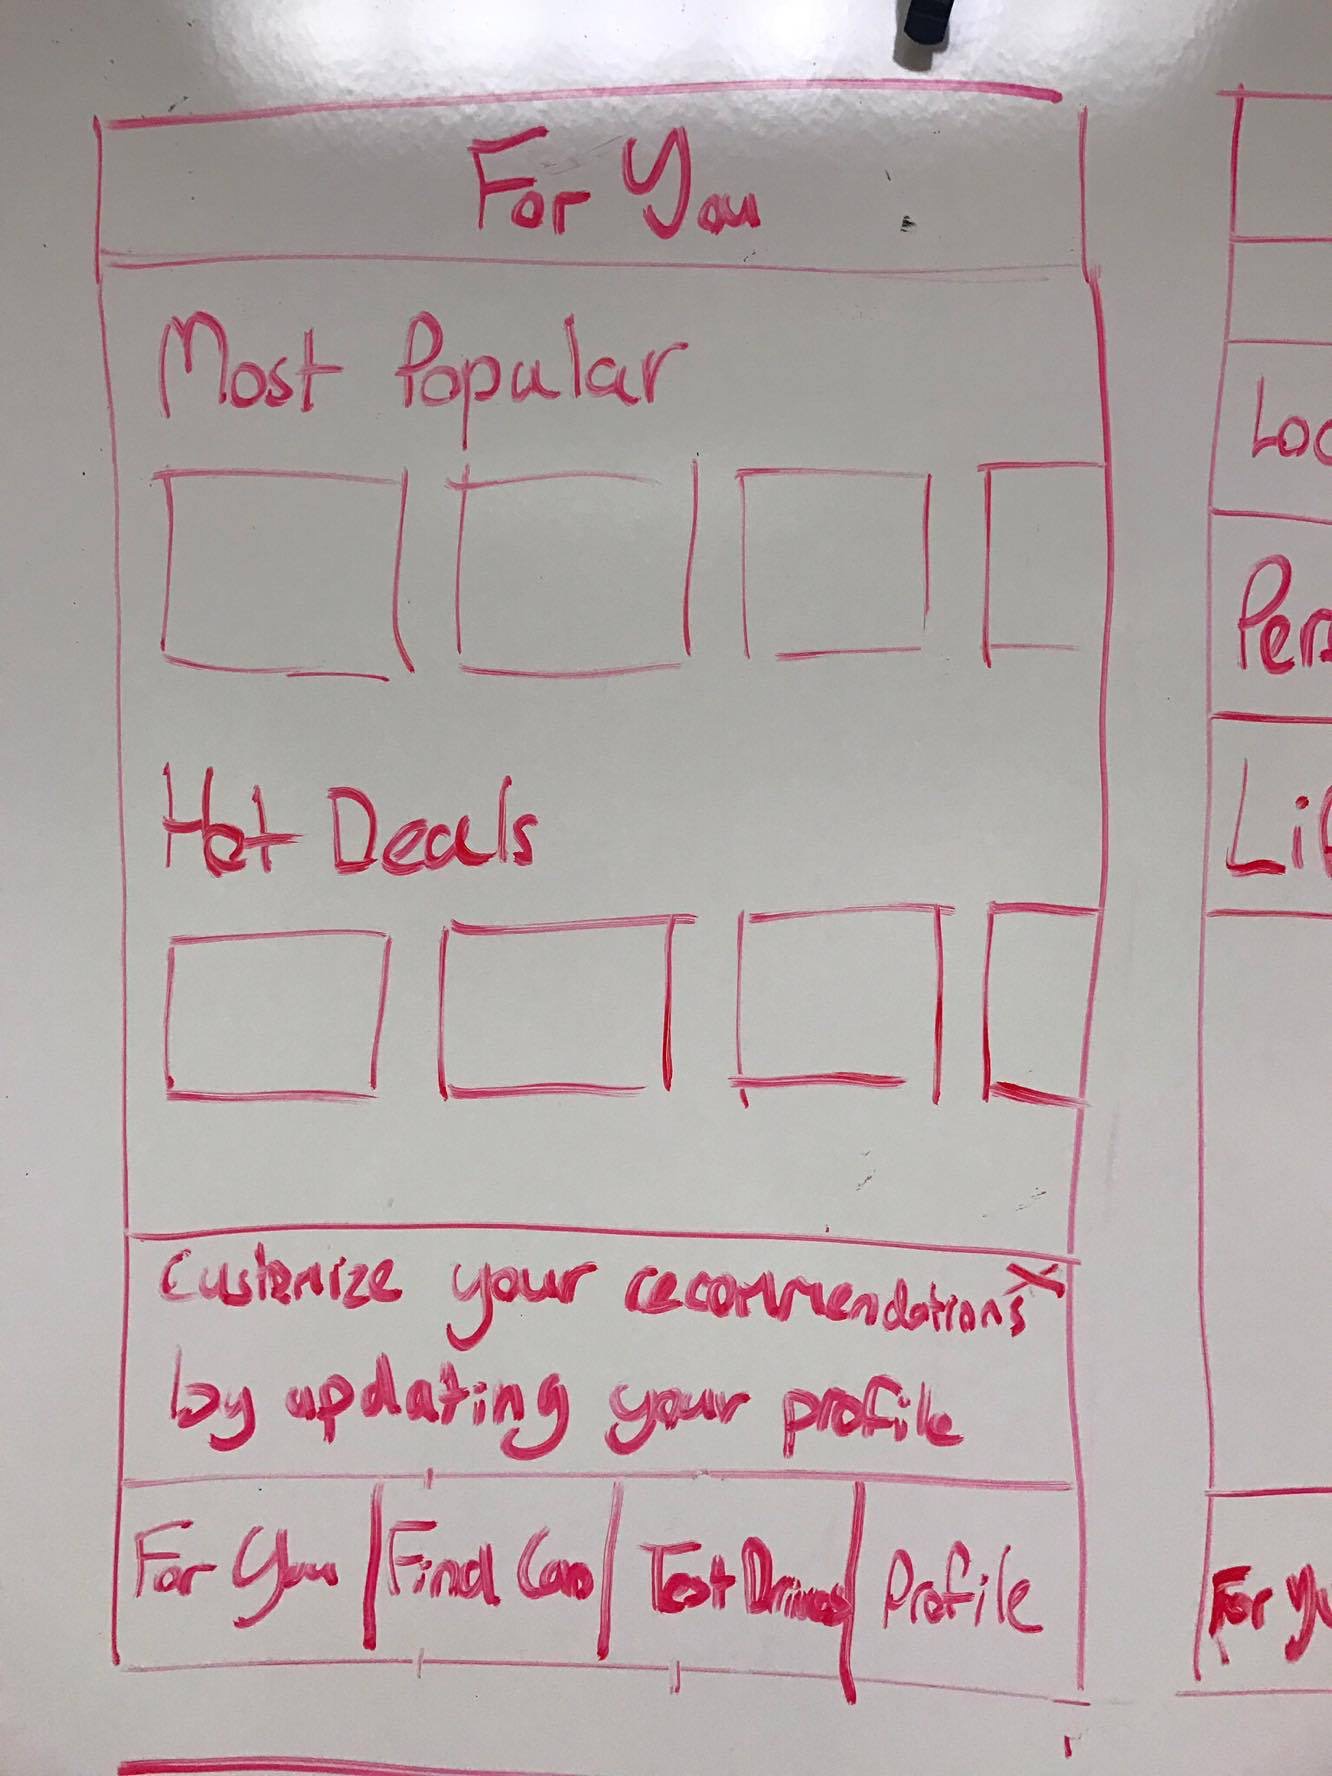 For You
Most Popular
Hot Deals
Customize your recommendations X
by updating your profile
For You
Find Car
Test Drives
Profile
Loc
Pers
Lif
For Yo